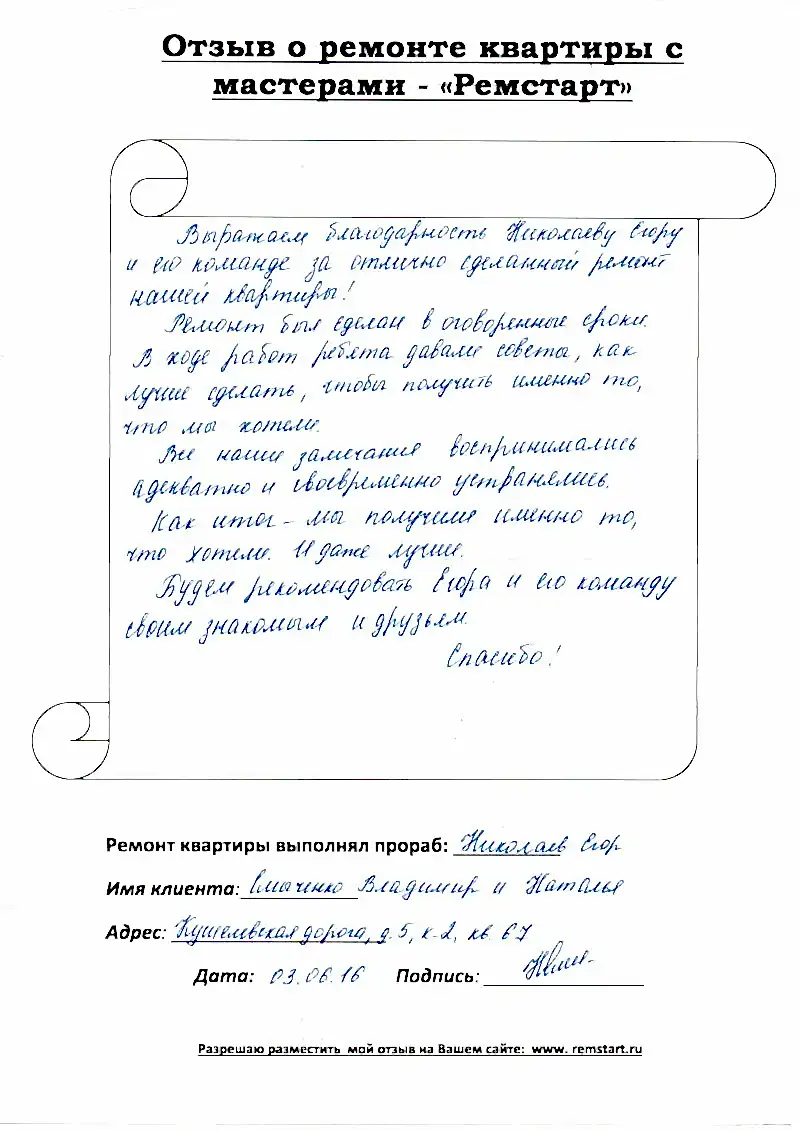 Отзыв о ремонте квартиры с
мастерами - «Ремстарт»
Выражаем благодарность Николаеву Егору
и его команде за отлично сделанный ремонт
нашей квартиры!
Ремонт был сделан в оговоренные сроки.
В ходе работ ребята давали советы, как
лучше сделать, чтобы получить именно то,
что мы хотели.
Все наши замечания воспринимались
адекватно и своевременно устранялись.
Как итог - мы получили именно то,
что хотели. И даже лучше.
Будем рекомендовать Егора и его команду
своим знакомым и друзьям.
Спасибо!
Ремонт квартиры выполнял прораб: Николаев Егор
Имя клиента: Владимир и Наталья
Адрес: дорога, д. 5, к. 2, кв. 67
Дата: 03.06.16 Подпись:
Разрешаю разместить мой отзыв на Вашем сайте: www. remstart.ru